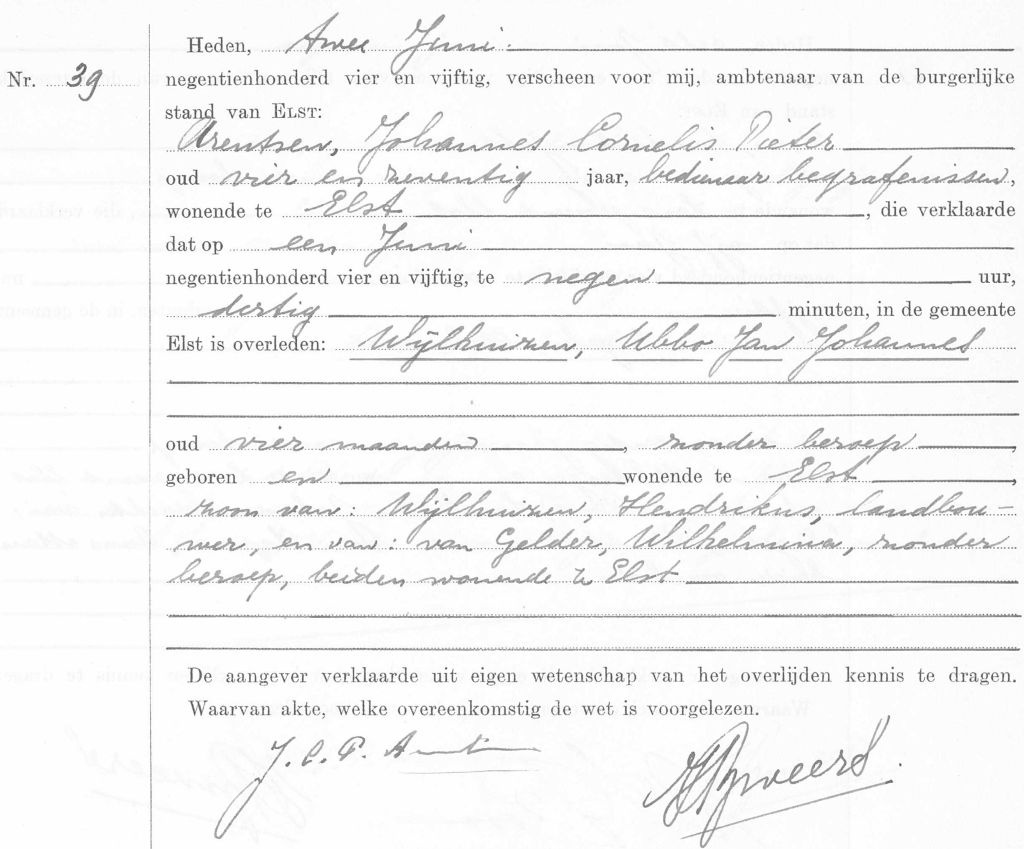 Heden, twee Juni
Nr. 39 negentienhonderd vier en vijftig, verscheen voor mij, ambtenaar van de burgerlijke
stand van ELST:
Arentsen, Johannes Cornelis Pieter
oud vier en zeventig jaar, bedienaar begrafenissen,
wonende te Elst, die verklaarde
dat op een Juni
negentienhonderd vier en vijftig, te negen uur,
dertig minuten, in de gemeente
Elst is overleden: Wijlhuizen, Ubbo Jan Johannes
oud vier maanden, zonder beroep,
geboren en wonende te Elst,
zoon van: Wijlhuizen, Hendrikus, landbou-
wer, en van: van Gelder, Wilhelmina, zonder
beroep, beiden wonende te Elst
De aangever verklaarde uit eigen wetenschap van het overlijden kennis te dragen.
Waarvan akte, welke overeenkomstig de wet is voorgelezen.
J. C. P.